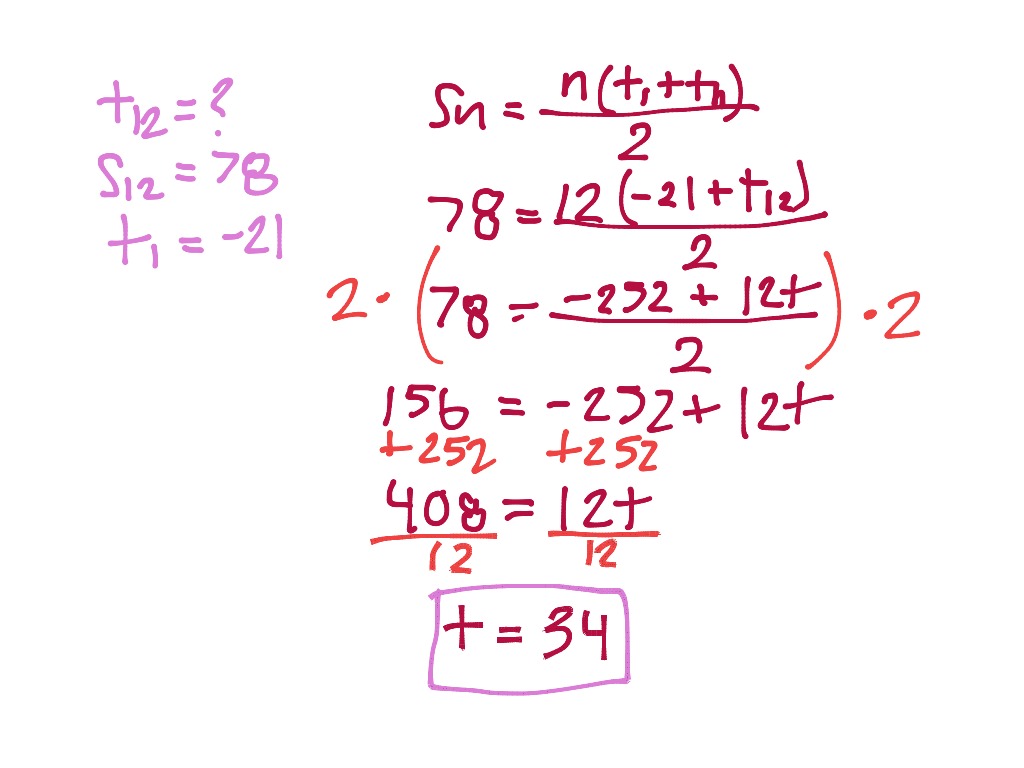 t₁₂ = ?
S₁₂ = 78
t₁ = -21
Sn = n(t₁ + tₙ) / 2
78 = 12(-21 + t₁₂) / 2
2 · (78 = -252 + 12t / 2) · 2
156 = -252 + 12t
+252 +252
408 = 12t
12 12
t = 34